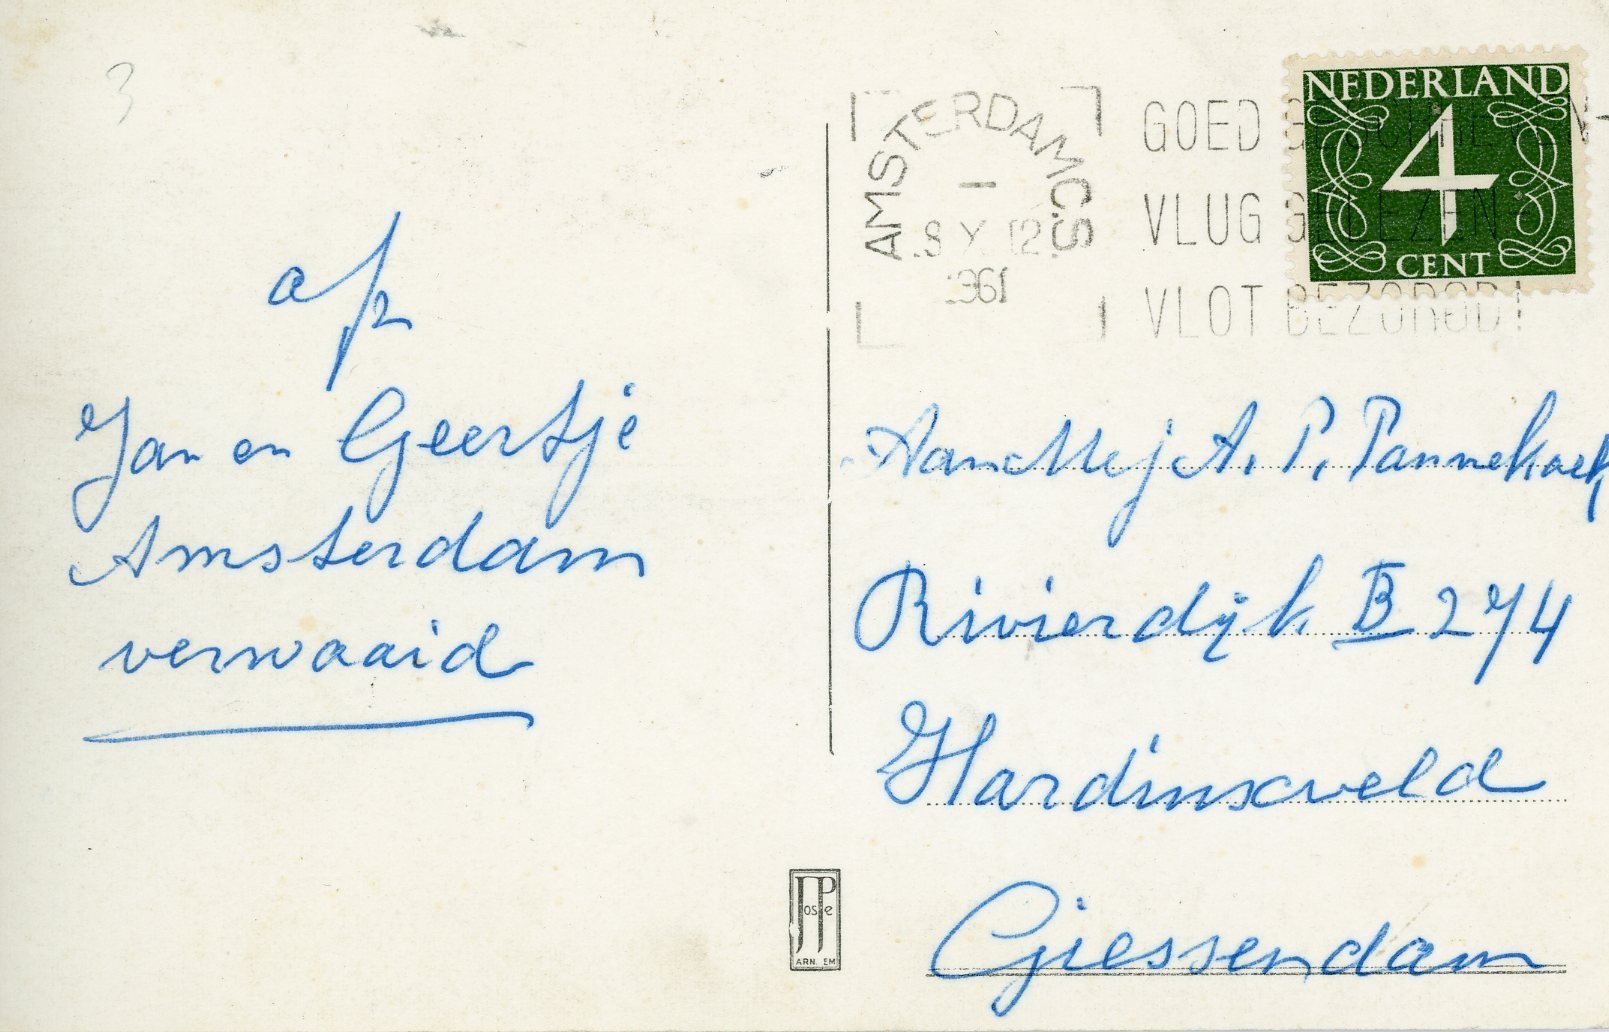 3
afz
Jan en Geertje
Amsterdam
verwaaid
AMSTERDAM C.S
1
.8 X. 12.
1961
GOED GESCHREVEN
VLUG GELEZEN
VLOT BEZORGD!
NEDERLAND
4
CENT
Aan Mej A. P. Pannekoek
Rivierdijk B 274
Hardinxveld
Giessendam
JosPe
ARN. EM